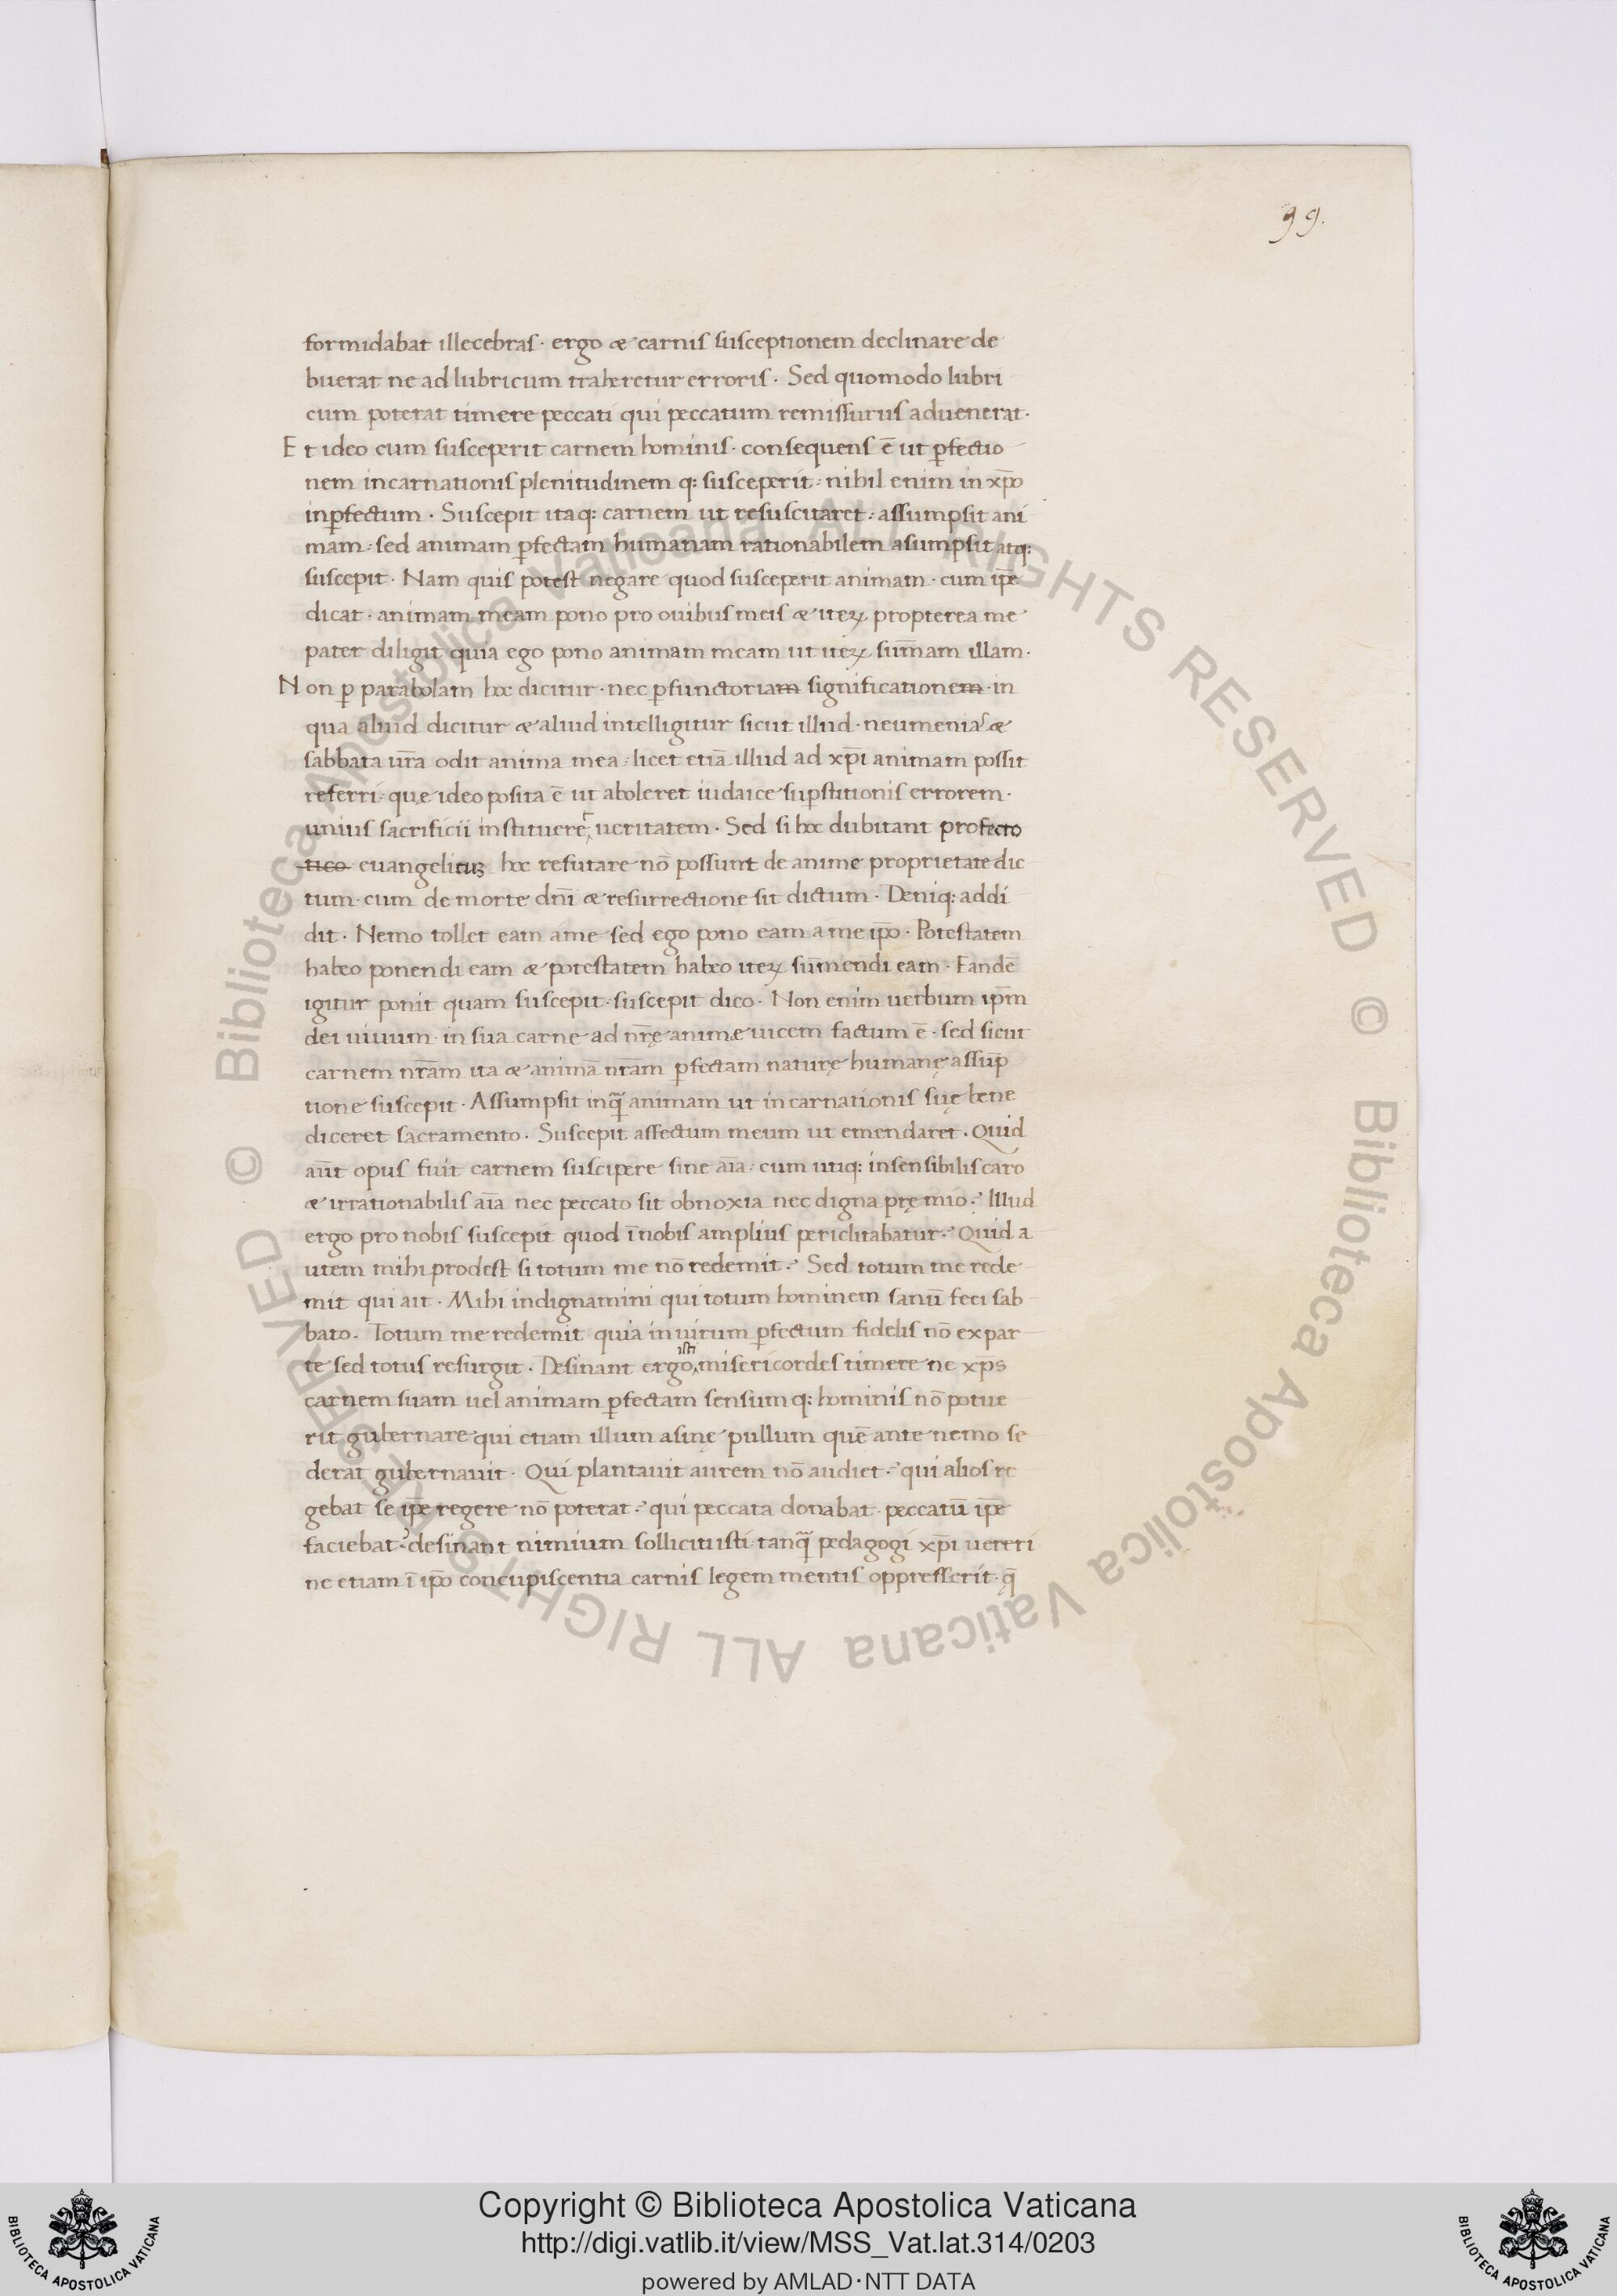 99.
formidabat illecebras · ergo & carnis susceptionem declinare de
buerat ne ad lubricum traheretur erroris · Sed quomodo lubri
cum poterat timere peccati qui peccatum remissurus aduenerat ·
Et ideo cum susceperit carnem hominis · consequens ē ut ꝑfectio
nem incarnationis plenitudinem q: susceperit · nihil enim in xp̄o
inꝑfectum · Suscepit itaq: carnem ut resuscitaret · assumpsit ani
mam · sed animam ꝑfectam humanam rationabilem asumpsit atq:
suscepit · Nam quis potest negare quod susceperit animam · cum ip̄e
dicat · animam meam pono pro ouibus meis & iteꝝ propterea me
pater diligit quia ego pono animam meam ut iteꝝ sum̄am illam ·
Non ꝑ parabolam hoc dicitur · nec ꝑfunctoriam significationem · in
qua aliud dicitur & aliud intelligitur sicut illud · neumenias &
sabbata ur̄a odit anima mea · licet etiā illud ad xp̄i animam possit
referri · quę ideo posita ē ut aboleret iudaice suꝑstitionis errorem ·
unius sacrificii instituere&#x74; ueritatem · Sed si hoc dubitant profecto
tico euangelicuꝫ hoc refutare nō possunt de anime proprietate dic
tum · cum de morte dn̄i & resurrectione sit dictum · Deniq: addi
dit · Nemo tollet eam a me sed ego pono eam a me ip̄o · Potestatem
habeo ponendi eam & potestatem habeo iteꝝ sum̄endi eam · Eandē
igitur ponit quam suscepit · suscepit dico · Non enim uerbum ip̄m
dei uiuum · in sua carne ad nr̄ę animę uicem factum ē · sed sicut
carnem nr̄am ita & animā nr̄am ꝑfectam naturę humanę assūp
tione suscepit · Assumpsit inq̄ animam ut incarnationis suę bene
diceret sacramento · Suscepit affectum meum ut emendaret · Quid
aūt opus fuit carnem suscipere sine aīa · cum utiq: insensibilis caro
& irrationabilis aīa nec peccato sit obnoxia nec digna pręmio · Illud
ergo pro nobis suscepit quod ī nobis amplius periclitabatur · Quid a
utem mihi prodest si totum me nō redemit · Sed totum me rede
mit qui ait · Mihi indignamini qui totum hominem sanū feci sab
bato · Totum me redemit quia in uirum ꝑfectum fidelis nō ex par
te sed totus resurgit · Desinant ergo isti misericordes timere ne xp̄s
carnem suam uel animam ꝑfectam sensum q: hominis nō potue
rit gubernare qui etiam illum asinę pullum quē ante nemo se
derat gubernauit · Qui plantauit aurem nō audiet · qui alios re
gebat se ip̄e regere nō poterat · qui peccata donabat · peccatū ip̄e
faciebat · desinant nimium solliciti isti tanq̄ pedagogi xp̄i uereri
ne etiam ī ip̄o concupiscentia carnis legem mentis oppresserit · q̄
© Biblioteca Apostolica Vaticana ALL RIGHTS RESERVED © Biblioteca Apostolica Vaticana ALL RIGHTS RESERVED
Copyright © Biblioteca Apostolica Vaticana
http://digi.vatlib.it/view/MSS_Vat.lat.314/0203
powered by AMLAD·NTT DATA
BIBLIOTECA APOSTOLICA VATICANA
BIBLIOTECA APOSTOLICA VATICANA